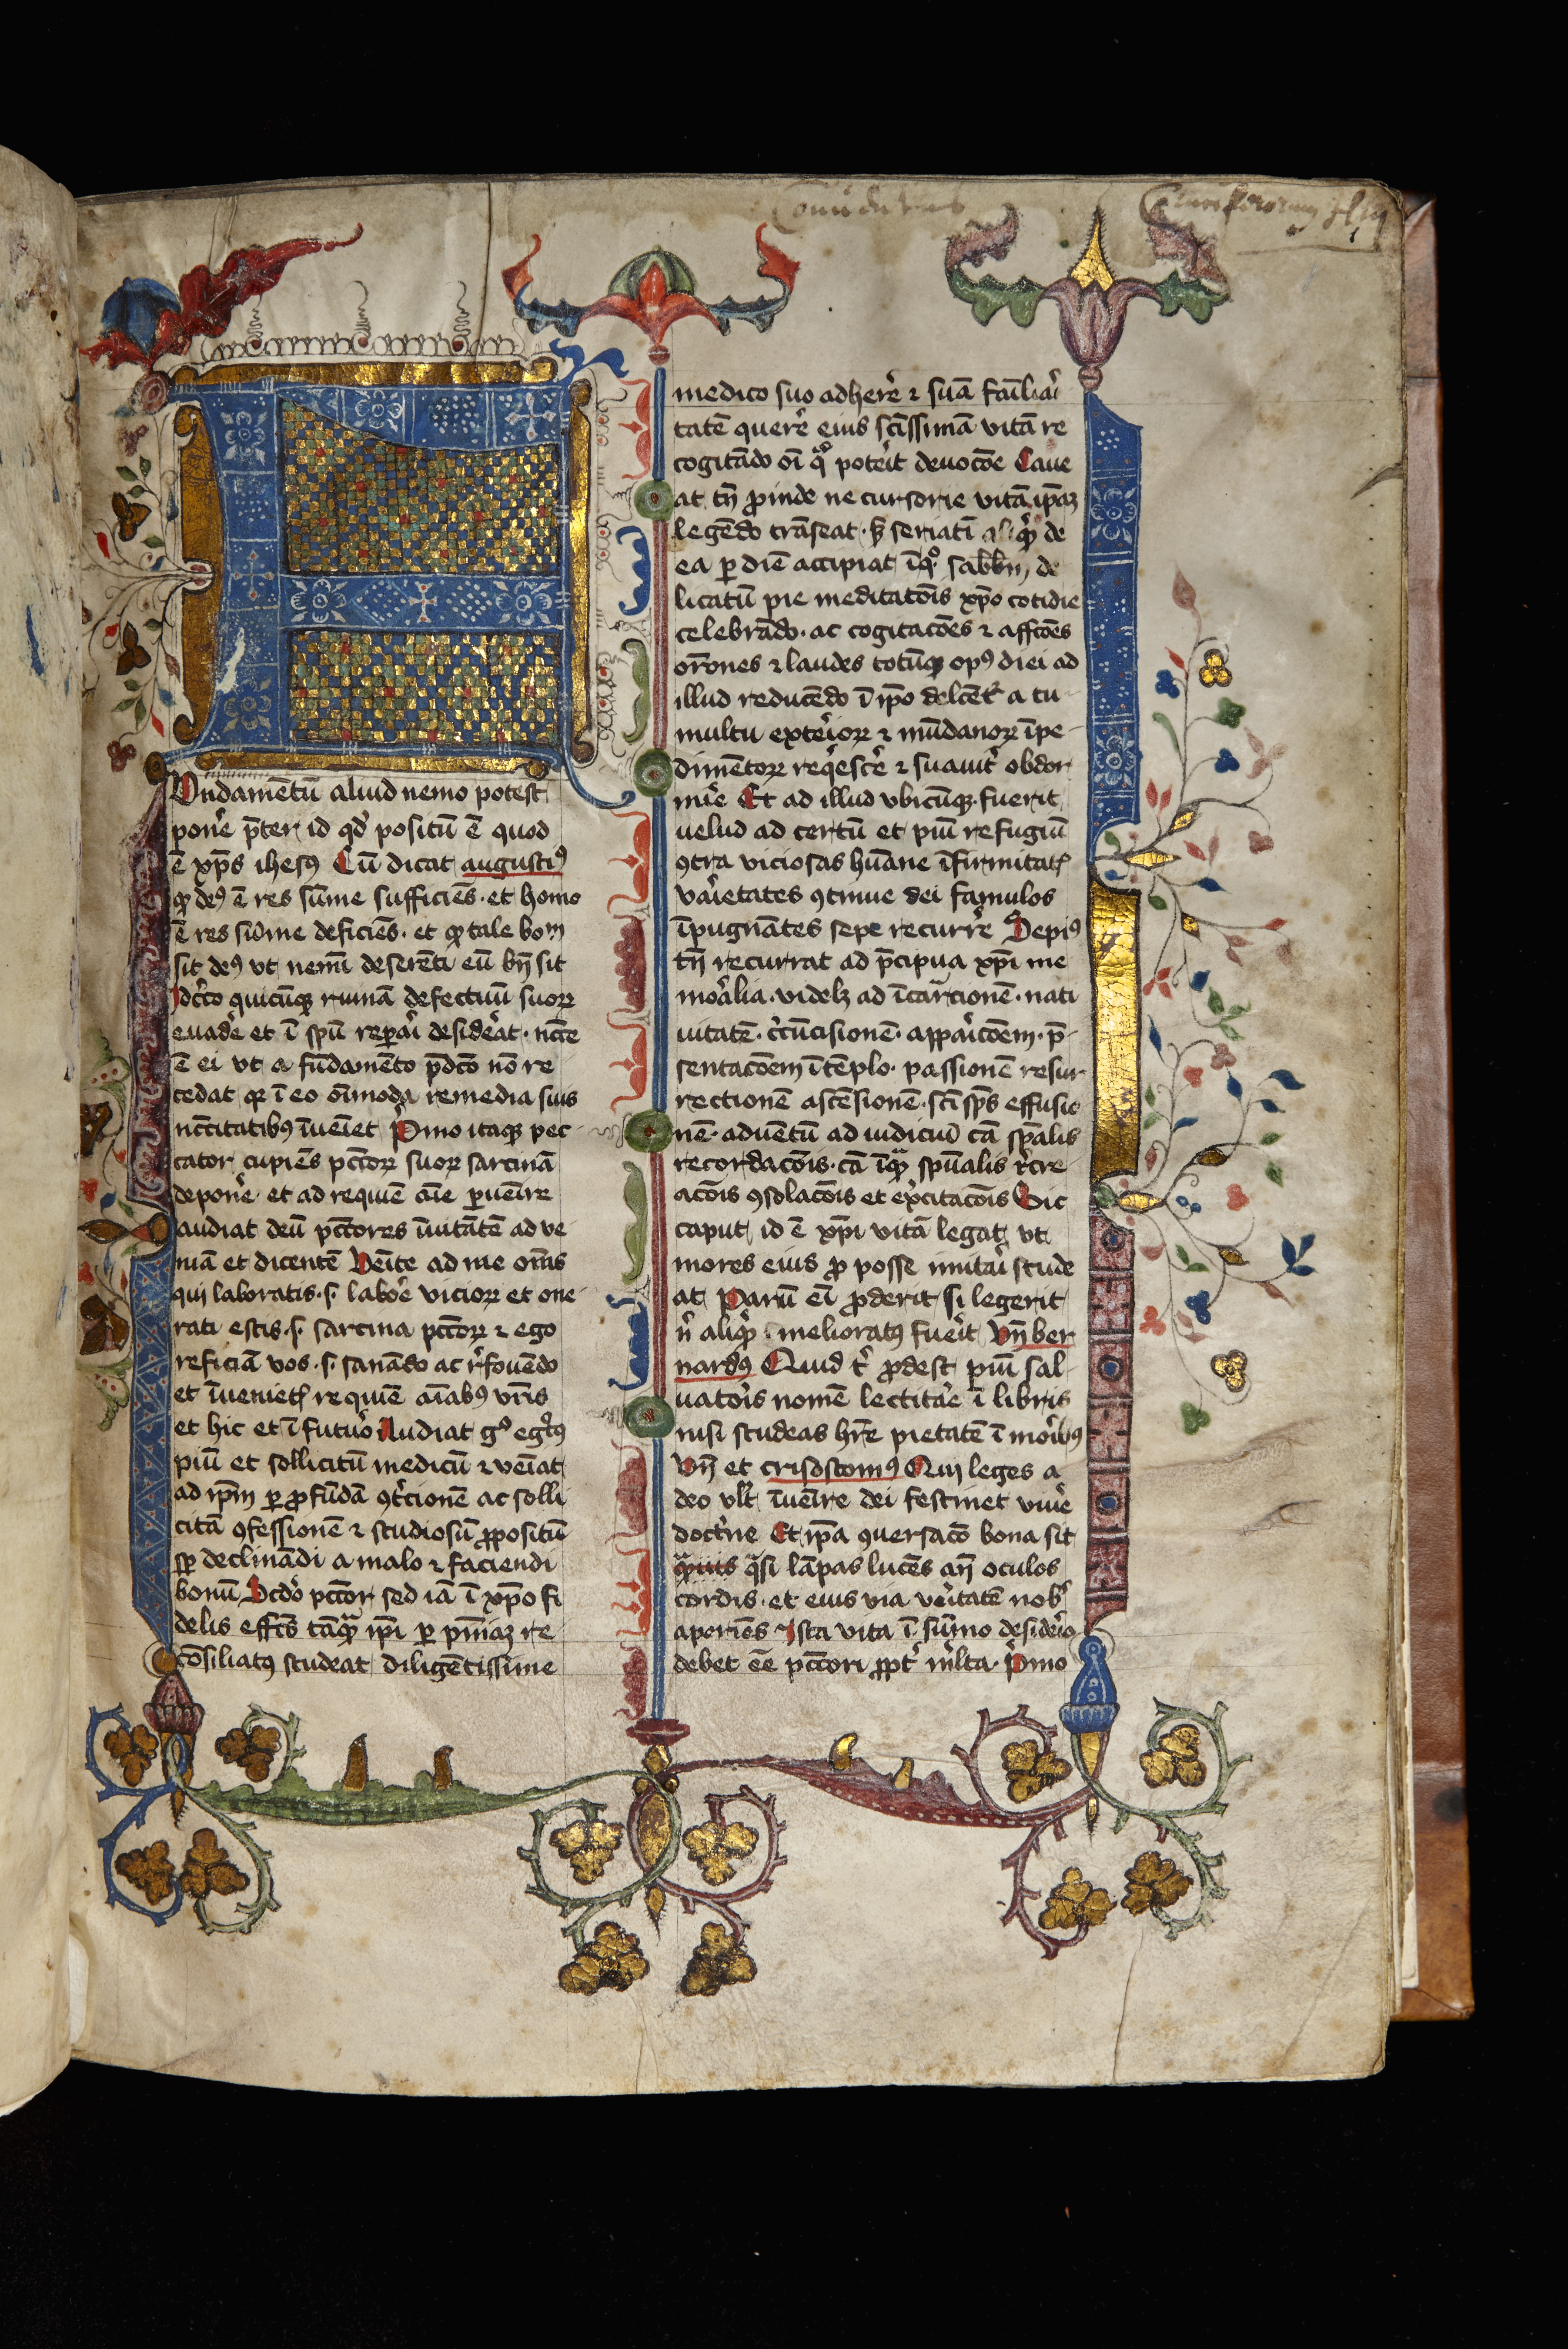 Conventus Cruciferorum
F
Undamētū aliud nemo potest
pone̓ p̄ter id qd̓ positū ē quod
ē xp̄s ihesꝰ Cū dicat augustiꝰ
ꝙ deꝰ ē res sūme sufficiēs · et homo
ē res sūme deficiēs · et ꝙ tale bonū
sit deꝰ vt nemī deserēti eū bn̄ sit
Idc̓co quicūqꝫ ruinā defectuū suoꝝ
euade̓ et ī sp̄u repa̓i desidēat · ncc̄e
ē ei vt a fūdamēto p̄dc̄o nō re
cedat qꝛ ī eo oīmoda remedia suis
ncc̄itatibꝰ īueīet Pi̓mo itaqꝫ pec-
cator cupiēs pcc̄oꝝ suoꝝ sarcinā
depone̓ et ad requiē aīe ꝑueīre
audiat deū pcc̄ores īuitātē ad ve
niā et dicentē Veīte ad me om̄s
qui laboratis · s· labo̓e vicioꝝ et one-
rati estis · s· sarcina pcc̄oꝝ ⁊ ego
reficiā vos · s· sanādo ac r̓fouēdo
et īuenietꝭ requiē aīabꝰ vr̄is
et hic et ī futu̓o Audiat gͦ egr̓ꝰ
piū et sollicitū medicū ⁊ veīat
ad ip̄m ꝑ ꝓfūdā ꝯt̓cionē ac solli
citā ꝯfessionē ⁊ studiosū ꝓpositū
sꝑ declinādi a malo ⁊ faciendi
bonū Scd̓o pcc̄or sed iā ī xp̄o fi
delis effc̄s tāqᷓꝫ ip̄i ꝑ pn̄iaꝫ re-
cōsiliatꝰ studeat diligētissime
medico suo adhere̓ ⁊ suā fāilia̓i
tatē quere̓ eius sc̄issimā vitā re
cogitādo oī qͣͦ pote̓it deuoc̄oe Caue
at tn̄ ꝓinde ne cursorie vitā ip̄aꝫ
legēdo trāseat · sꝫ seriatī aliqͥꝫ de
ea ꝑ diē accipiat īqͦ· sabbm̄ de
licatū pie meditatōis xp̄o cotidie
celebrādo · ac cogitacōes ⁊ affc̄oes
or̄ones ⁊ laudes totūqꝫ opꝰ diei ad
illud reducēdo ī ip̄o delc̄et᷑ a tu-
multu exte̓ioꝝ ⁊ mūdanoꝝ īpe-
dimētoꝝ reqͥesce̓ ⁊ suauit̓ obdor
mi̓e Et ad illud vbicūqꝫ fuerit
uelud ad certū et piū refugiū
ꝯtra viciosas hūane īfirmitatꝭ
va̓ietates ꝯtinue dei famulos
īpugnātes sepe recurre̓ Sepiꝰ
tn̄ recurrat ad p̄cipua xp̄i me
mo̓alia · videlꝫ ad īcarᷓcionē · nati
uitatē · ci̓cūcisionē · appa̓icōem · p̄-
sentacōem ī tēplo · passionē resur
rectionē ascēsionē · sc̄i sp̄s effusio
nē · aduētū ad iudiciū cā sp̄alis
recordacōis · cā īqᷓꝫ spūalis r̓cre-
acōis ꝯsolacōis et exc̓itacōis Sic
caput id ē xp̄i vitā legat vt
mores eius ꝓ posse imita̓i stude
at Parū eī ꝓderit si legerit
n̓ aliqͥꝫ melioratꝰ fue̓it Vn̄ ber
nardꝰ Quid t̓ ꝓdest piū sal
uato̓is nomē lectita̓e ī libris
nisi studeas hr̄e pietatē ī mo̓ibꝰ
Vn̄ et crisostomꝰ Qui leges a
deo vlt̓ īueīre dei festinet viue̓
doct̓ne Et ip̄a ꝯuersacō bona sit
qᷓsi lāpas lucēs an̄ oculos
cordis · et eius via ve̓itatē nobꝭ
aperiēs Ista vita ī sūmo deside̓io
debet ēe pcc̄ori ꝓpt̓ m̓lta · Pi̓mo